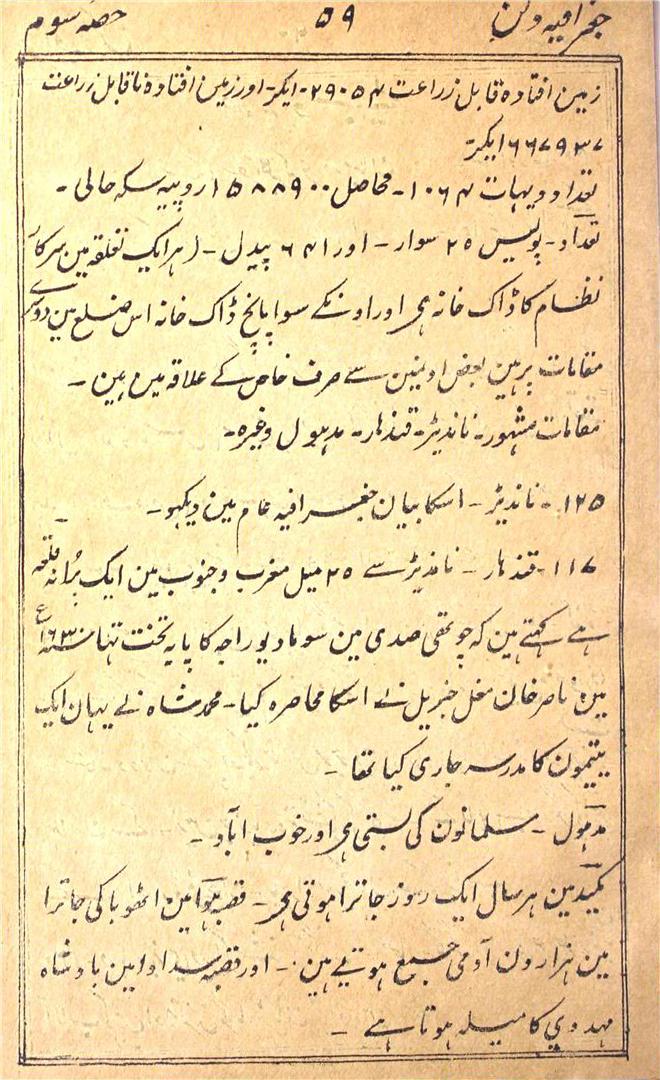 جغرافیہ دکن ۵۹ حصہ سوم
زمین افتادہ قابل زراعت ۲۹۰۵۴ - ایکڑ - اور زمین افتادہ ناقابل زراعت
۶۶۷۹۳۷ ایکڑ
تعداد دیہات ۱۰۶۴ - محاصل ۱۵۸۸۹۰۰ روپیہ سکہ حالی -
تعداد - پولیس ۲۵ سوار - اور ۶۴۱ پیدل - (ہر ایک تعلقہ مین سرکار
نظام کا ڈاک خانہ ہی اور اونکے سوا پانچ ڈاک خانہ اس ضلع مین دوسرے
مقامات پر ہین بعض اونمین سے صرف خاص کے علاقہ مین ہین -
مقامات مشہور - ناندیڑ - قندہار - مدہول وغیرہ -
۱۲۵ - ناندیڑ - اسکا بیان جغرافیہ عام مین دیکہو -
۱۱۷ - قندہار - ناندیڑ سے ۲۵ میل مغرب و جنوب مین ایک پُرانہ قلعہ
ہے کہتے ہین کہ چوتھی صدی مین سومادیو راجہ کا پایہ تخت تہا سنہ ۱۶۳۰ع
مین ناصر خان مغل جنریل نے اسکا محاصرہ کیا - محمد شاہ نے یہان ایک
یتیمون کا مدرسہ جاری کیا تھا -
مدہول - مسلمانون کی بستی ہی اور خوب آباد -
مین ہر سال ایک روز جاترا ہوتی ہی - قصبہ مین اٹھوبا کی جاترا
مین ہزارون آدمی جمع ہوتے ہین - اور قصبہ مین بادشاہ
مہدوی کا میلہ ہوتا ہے -